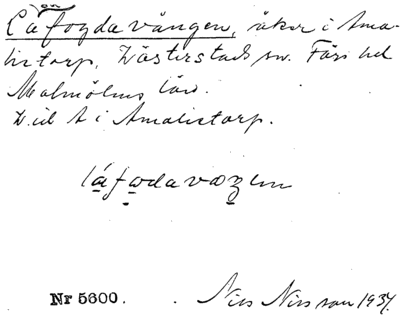 Låfogdavången, åker i Ama-
listorp, Västerstads sn. Färs hd
Malmöhus län.
V. id A i Amalistorp.
låfodavaŋen
Nr 5600.
Nils Nilsson 1937.